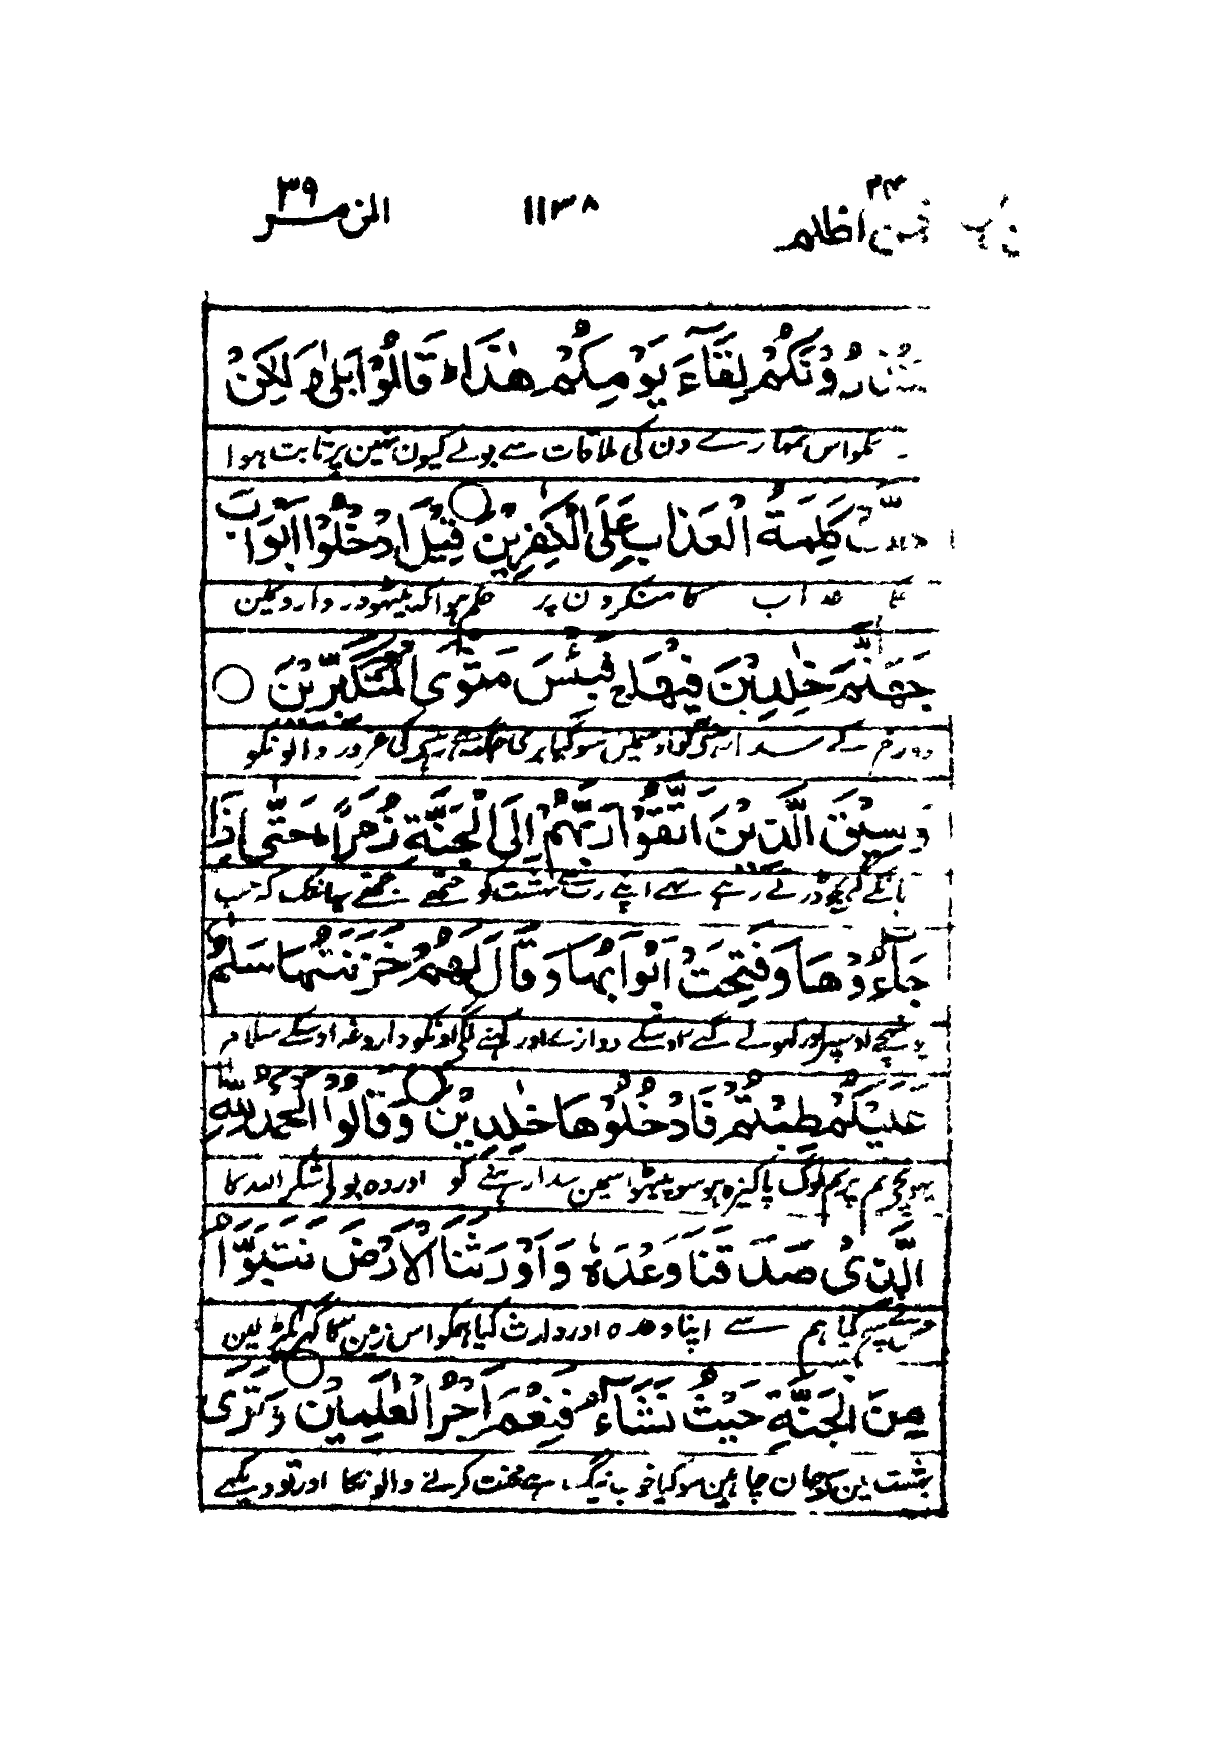 فمن اظلم ۲۴ ۱۱۳۸ الزمر ۳۹
يُنْذِرُوْنَكُمْ لِقَآءَ يَوْمِكُمْ هٰذَا ؕ قَالُوْا بَلٰى وَ لٰكِنْ
تمکو اس تمہارے دن کی ملاقات سے بولے کیون نہین پر ثابت ہوا
حَقَّتْ كَلِمَةُ الْعَذَابِ عَلَى الْكٰفِرِيْنَ ○ قِيْلَ ادْخُلُوْٓا اَبْوَابَ
عذاب کا منکرون پر حکم ہوا کہ پیٹھو دروازونمین
جَهَنَّمَ خٰلِدِيْنَ فِيْهَا ۚ فَبِئْسَ مَثْوَى الْمُتَكَبِّرِيْنَ ○
دوزخ کے سدا رہنے کو اوسمین سو کیا بری جگہ ہے رہنے کی غرور والونکو
وَسِيْقَ الَّذِيْنَ اتَّقَوْا رَبَّهُمْ اِلَى الْجَنَّةِ زُمَرًا ؕ حَتّٰٓى اِذَا
ہانکے گئے جو ڈرتے رہے تھے اپنے رب سے بہشت کو جتھے جتھے یہانتک کہ جب
جَآءُوْهَا وَفُتِحَتْ اَبْوَابُهَا وَقَالَ لَهُمْ خَزَنَتُهَا سَلٰمٌ
پہنچے اوسپر اور کھولے گئے اوسکے دروازے اور کہنے لگے اونکو داروغہ اوسکے سلام
عَلَيْكُمْ طِبْتُمْ فَادْخُلُوْهَا خٰلِدِيْنَ ○ وَقَالُوا الْحَمْدُ لِلّٰهِ
پہونچے تم پر تم لوگ پاکیزہ ہو سو پیٹھو اسمین سدا رہنے کو اور وہ بولے شکر اللہ کا
الَّذِيْ صَدَقَنَا وَعْدَهٗ وَاَوْرَثَنَا الْاَرْضَ نَتَبَوَّاُ
جسنے سچ کیا ہم سے اپنا وعدہ اور وارث کیا ہمکو اس زمین کا گھر پکڑ لین
مِنَ الْجَنَّةِ حَيْثُ نَشَآءُ ۚ فَنِعْمَ اَجْرُ الْعٰمِلِيْنَ ○ وَتَرَى
بہشت مین جہان چاہین سو کیا خوب نیگ ہے محنت کرنے والونکا اور تو دیکھے